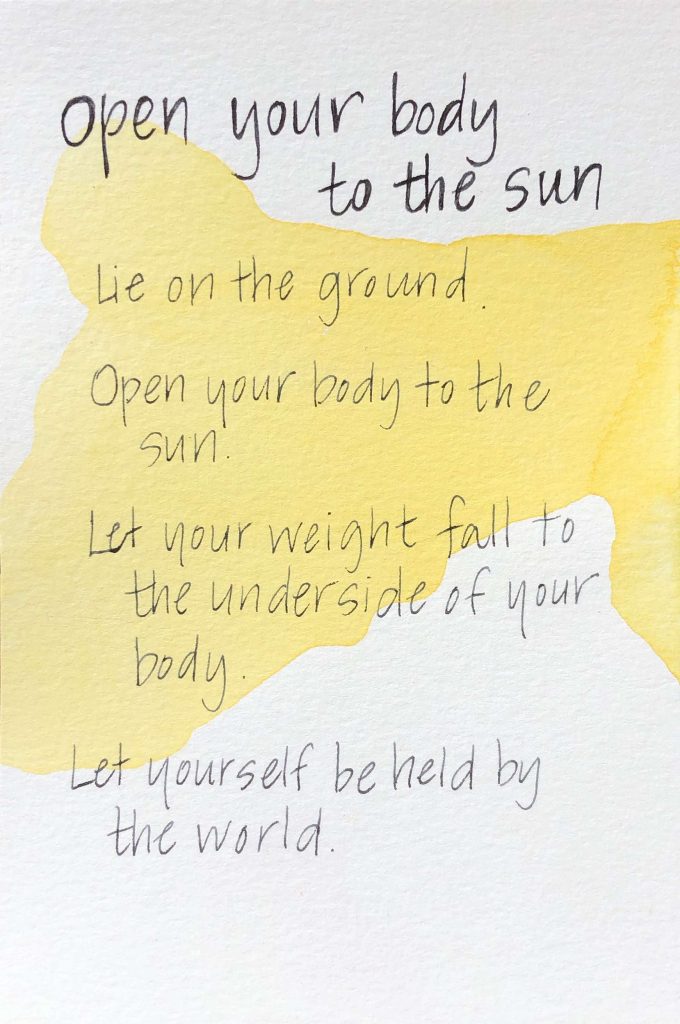 Open your body
to the sun
Lie on the ground.
Open your body to the
sun.
Let your weight fall to
the underside of your
body.
Let yourself be held by
the world.